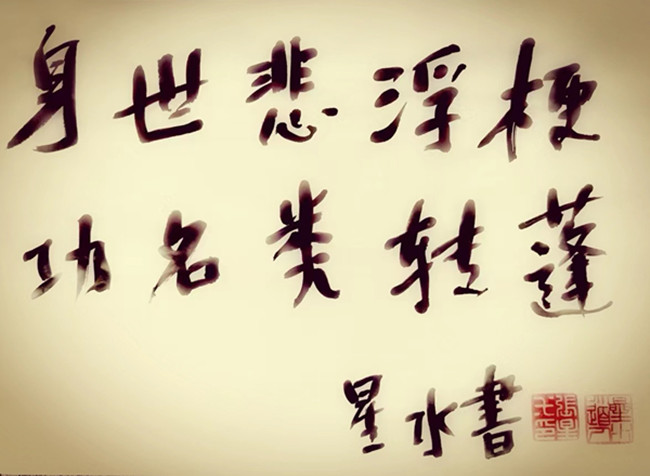 身世悲浮梗
功名类转蓬
星水書